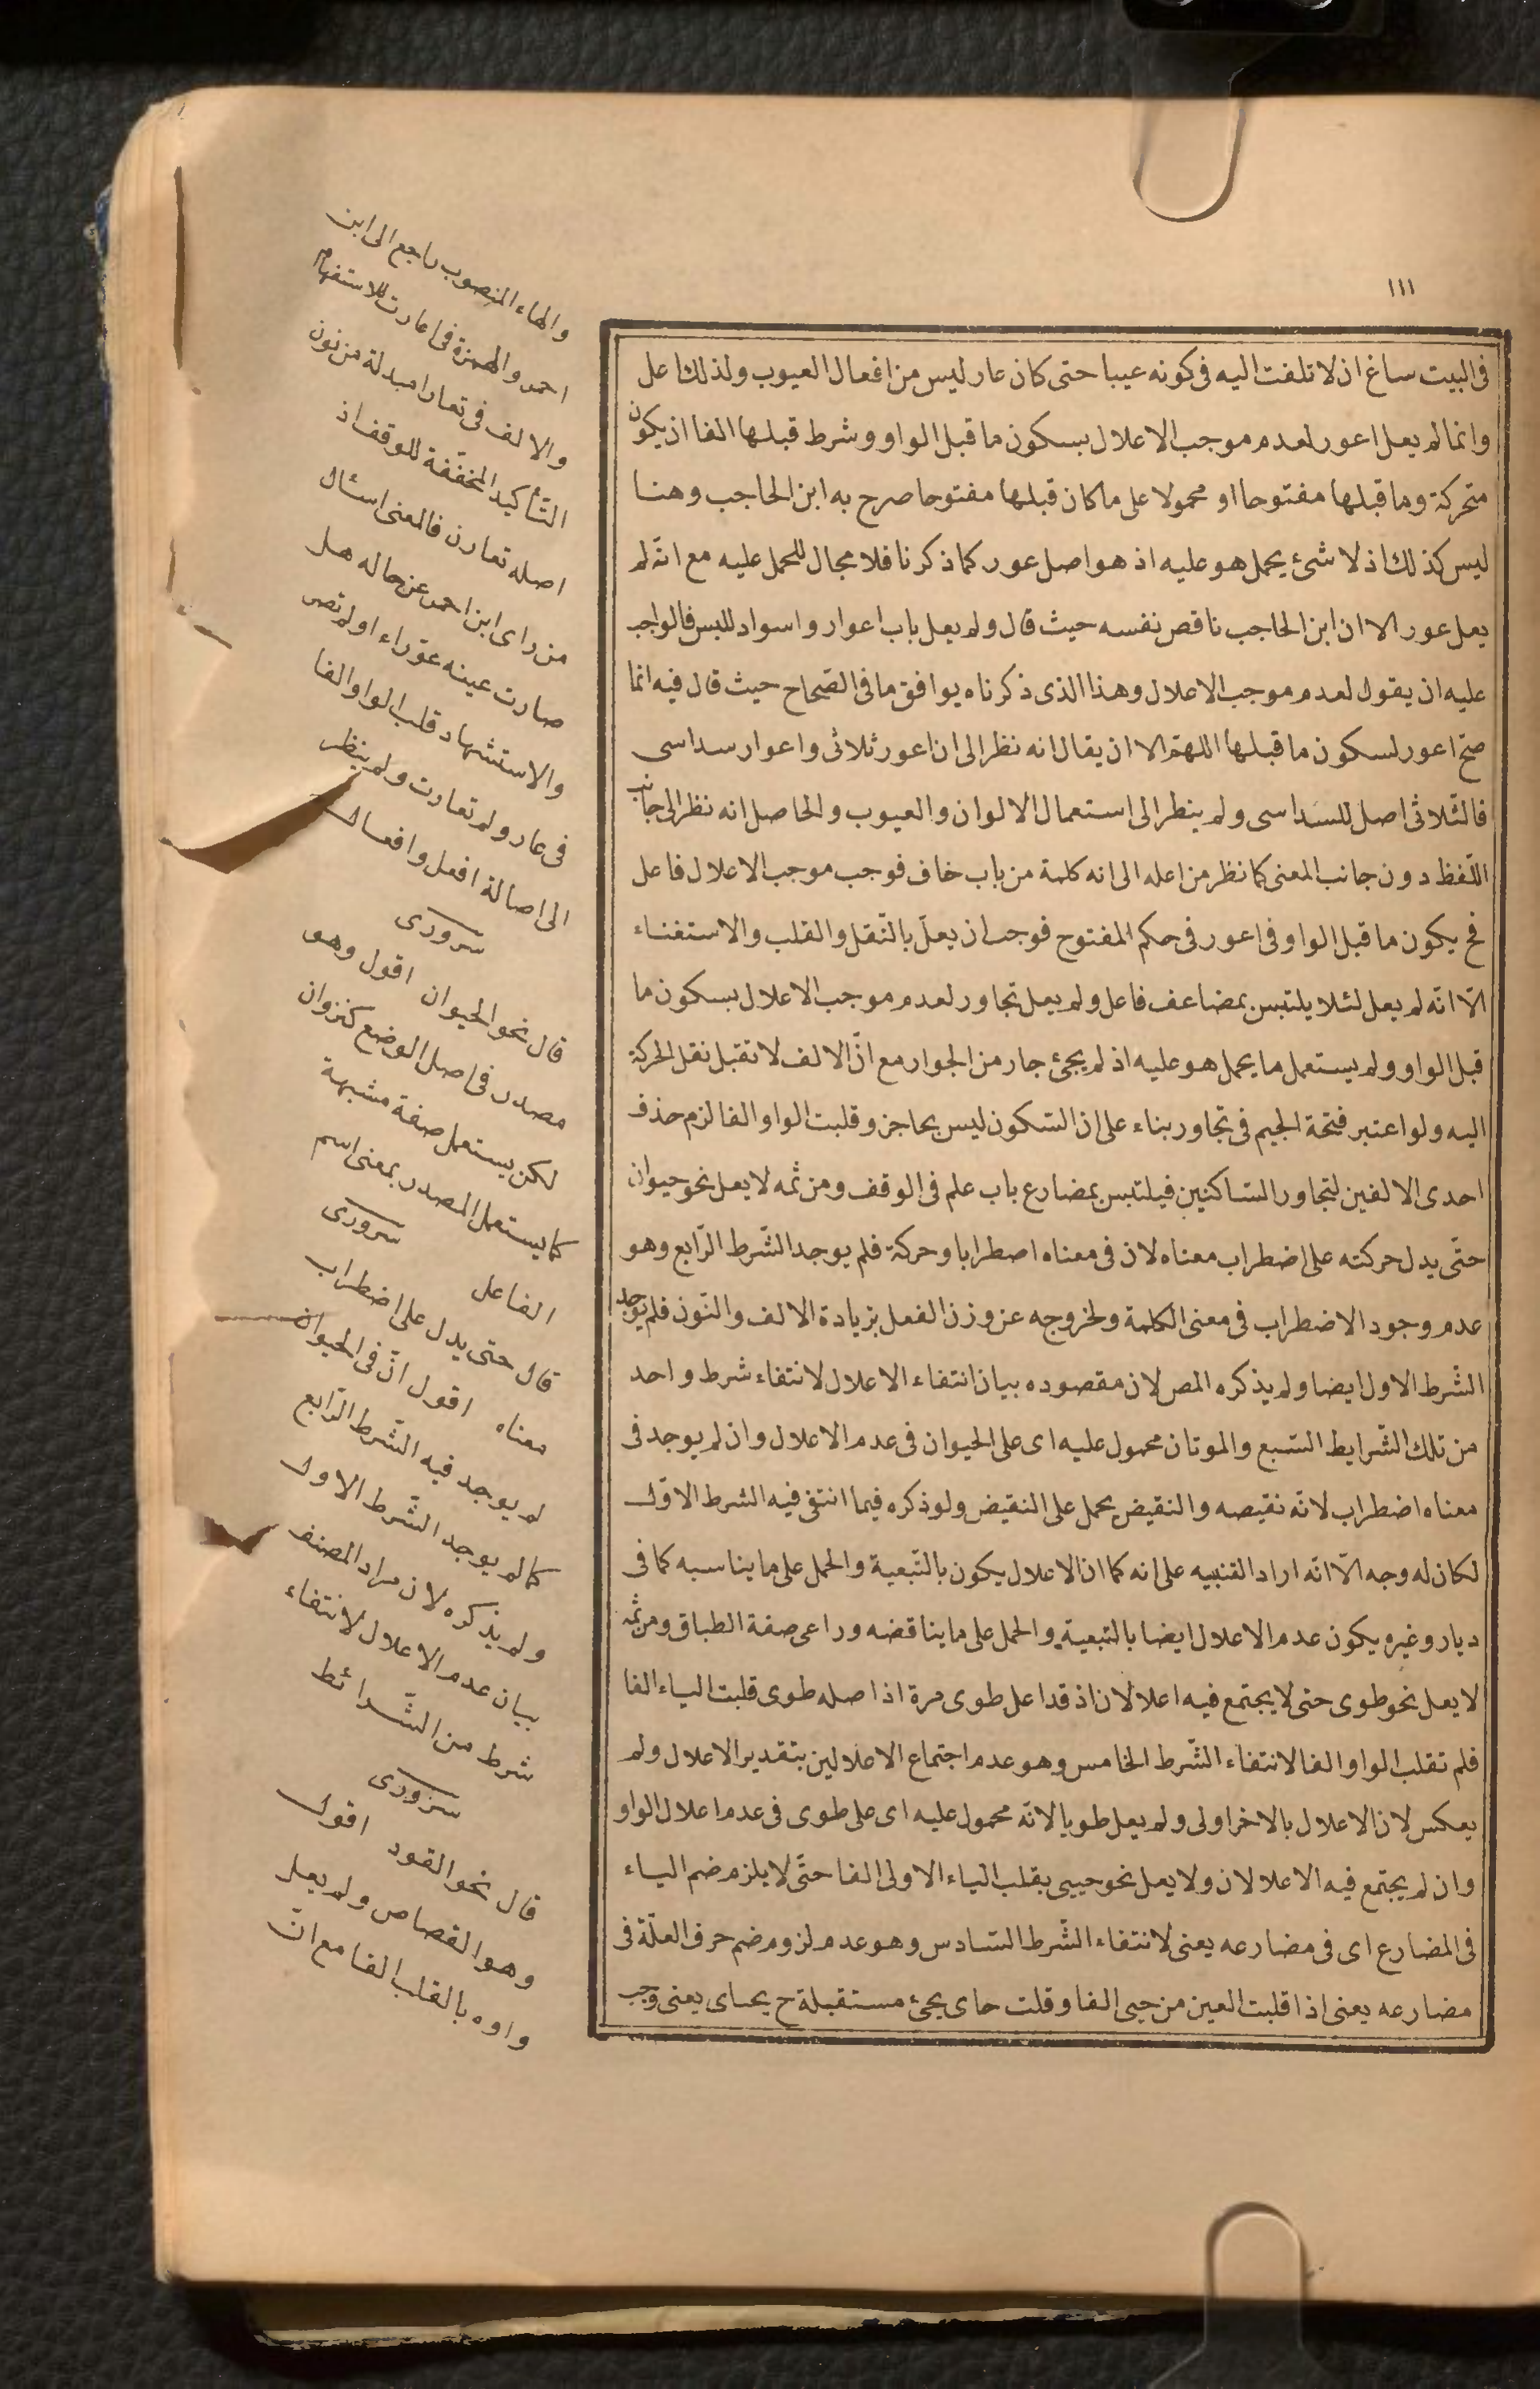 ١١١
فى البيت ساغ ان لا تلفت اليه فى كونه عيبا حتى كان عار ليس من افعال العيوب ولذلك اعل
وانما لم يعل اعور لعدم موجب الاعلال بسكون ما قبل الواو وشرط قبلها الفا ان يكون
متحركة وما قبلها مفتوحا او محمولا على ما كان قبلها مفتوحا صرح به ابن الحاجب وهنا
ليس كذلك اذ لا شئ يحمل هو عليه اذ هو اصل عور كما ذكرنا فلا مجال للحمل عليه مع انه لم
يعل عور الا ان ابن الحاجب ناقص نفسه حيث قال ولم يعل باب اعوار واسواد للبس فالواجب
عليه ان يقول لعدم موجب الاعلال وهذا الذى ذكرناه يوافق ما فى الصّحاح حيث قال فيه انما
صح اعور لسكون ما قبلها اللهمّ الا ان يقال انه نظر الى ان اعور ثلاثى واعوار سداسى
فالثّلاثى اصل للسّداسى ولم ينطر الى استعمال الالوان والعيوب والحاصل انه نظر الى جانب
اللّفظ دون جانب المعنى كما نظر من اعله الى انه كلمة من باب خاف فوجب موجب الاعلال فاعل
فح يكون ما قبل الواو فى اعور فى حكم المفتوح فوجب ان يعلّ بالنّقل والقلب والاستغناء
الّا انّه لم يعل لئلا يلتبس بمضاعف فاعل ولم يعل تجاور لعدم موجب الاعلال بسكون ما
قبل الواو ولم يستعمل ما يحمل هو عليه اذ لم يجئ جار من الجوار مع انّ الالف لا تقبل نقل الحركة
اليه ولو اعتبر فتحة الجيم فى تجاور بناء على ان السّكون ليس بحاجز وقلبت الواو الفا لزم حذف
احدى الالفين لتجاور السّاكنين فيلتبس بمضارع باب علم فى الوقف ومن ثمه لا يعل نحو حيوان
حتّى يدل حركته على اضطراب معناه لان فى معناه اصطرابا وحركة فلم يوجد الشّرط الرّابع وهو
عدم وجود الاضطراب فى معنى الكلمة ولخروجه عن وزن الفعل بزيادة الالف والنّون فلم يوجد
الشّرط الاول ايضا ولم يذكره المص لان مقصوده بيان انتفاء الاعلال لانتفاء شرط واحد
من تلك الشّرايط السّبع والموتان محمول عليه اى على الحيوان فى عدم الاعلال وان لم يوجد فى
معناه اضطراب لانّه نقيصه والنقيض يحمل على النقيض ولو ذكره فيما انتفى فيه الشرط الاوّل
لكان له وجه الّا انّه اراد التنبيه على انه كما ان الاعلال يكون بالتّبعية والحمل على ما يناسبه كما فى
ديار وغيره يكون عدم الاعلال ايضا بالتبعية والحمل على ما يناقضه وراعى صفة الطباق ومن ثمه
لا يعل نحو طوى حتى لا يجتمع فيه اعلالان اذ قد اعل طوى مرة اذ اصله طوى قلبت الياء الفا
فلم تقلب الواو الفا لانتفاء الشّرط الخامس وهو عدم اجتماع الاعلالين بتقدير الاعلال ولم
يعكس لان الاعلال بالاخر اولى ولم يعل طويا لانّه محمول عليه اى على طوى فى عدم اعلال الواو
وان لم يجتمع فيه الاعلالان ولا يعل نحو حيى بقلب الياء الاولى الفا حتّى لا يلزم ضم الياء
فى المضارع اى فى مضارعه يعنى لانتفاء الشّرط السّادس وهو عدم لزوم ضم حرف العلّة فى
مضارعه يعنى اذا قلبت العين من حيى الفا وقلت حاى يجئ مستقبلة ح يحاى يعنى وجب
والهاء المنصوب راجع الى ابن
احمر والهمزة فى اعارت للاستفهام
والالف فى تعارا مبدلة من نون
التّأكيد المخفّفة للوقف اذ
اصله تعارن فالمعنى اسئال
من راى ابن احمر عن حاله هل
صارت عينه عوراء او لم تصر
والاستشهاد قلب الواو الفا
فى عار ولم تعارت ولم ينظر
الى اصالة افعل وافعال
سرورى
قال نحو الحيوان اقول وهو
مصدر فى اصل الوضع كنزوان
لكن يستعمل صفة مشبهة
كما يستعمل المصدر بمعنى اسم
الفاعل سرورى
قال حتى يدل على اضطراب
معناه اقول انّ فى الحيوان
لم يوجد فيه الشّرط الرّابع
كما لم يوجد الشّرط الاول
ولم يذكره لان مراد المصنف
بيان عدم الاعلال لانتفاء
شرط من الشّرائط
سرورى
قال نحو القود اقول
وهو القصاص ولم يعل
واوه بالقلب الفا مع انّ